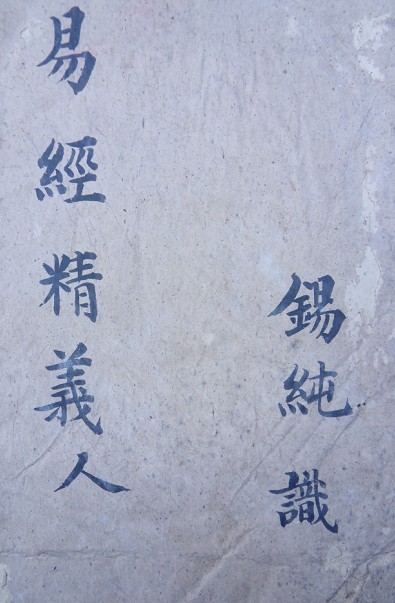 錫純識
易經精義人